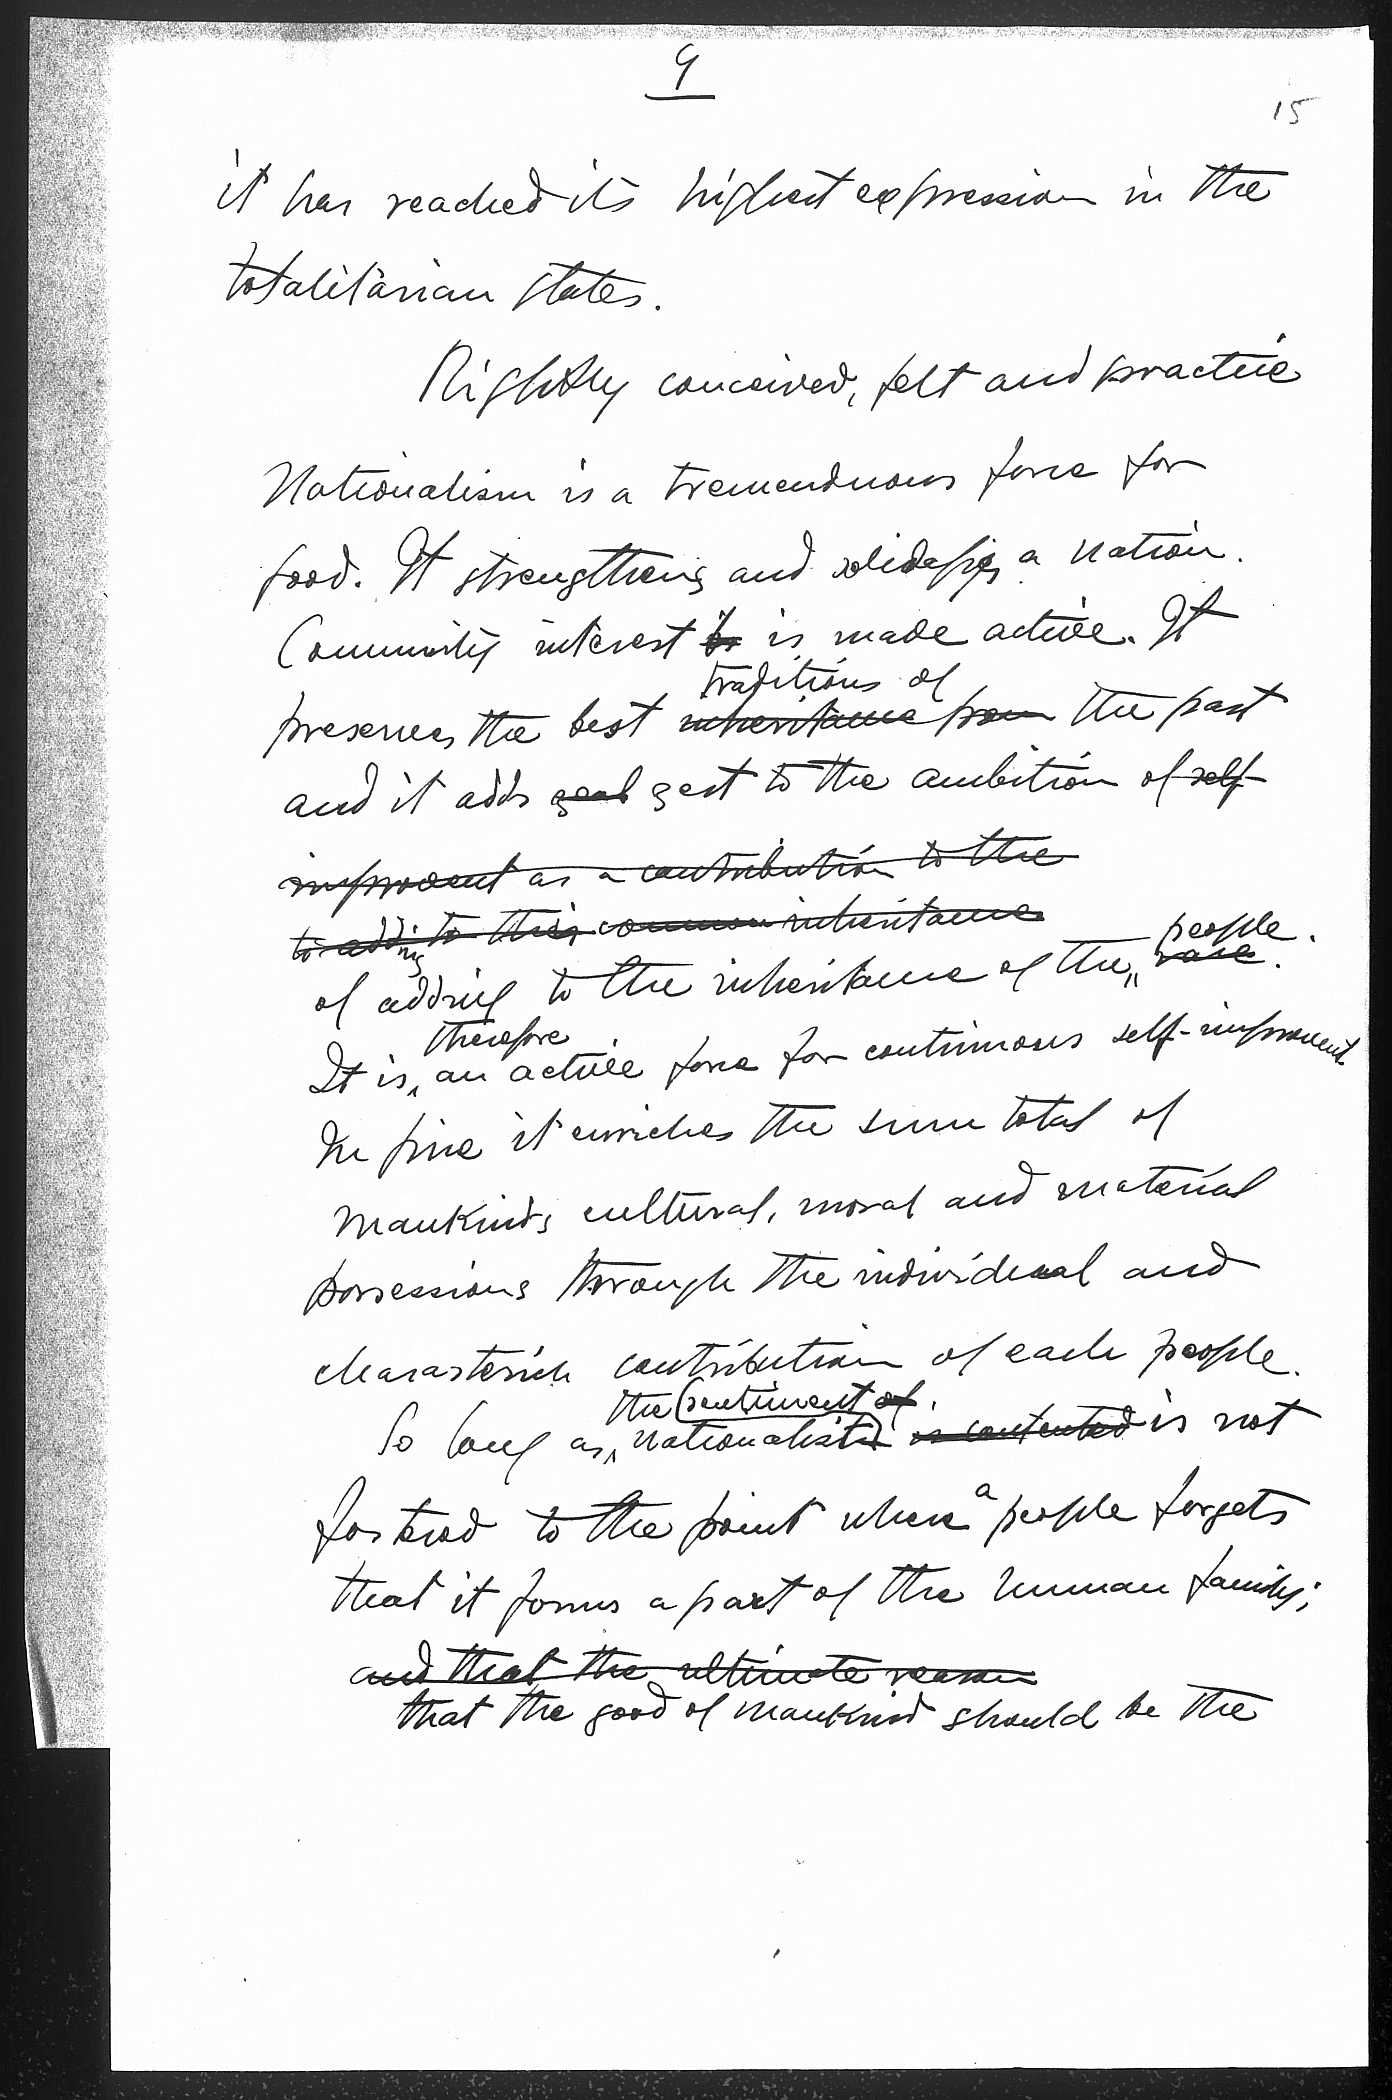 9
15
it has reached its highest expression in the
totalitarian states.
Rightly conceived, felt and practice
Nationalism is a tremenduous force for
good. It strengthens and solidifies a nation.
Community interest is is made active. It
traditions of
preserves the best inheritance from the past
and it adds zeal zest to the ambition of self-
improvement as a contribution to the
to adding to their common inheritance
people.
of adding to the inheritance of the race.
therefore
It is, an active force for continuous self-improvement
In fine it enriches the sum total of
Mankind's cultural, moral and material
possessions through the individual and
characteristic contribution of each people.
the sentiment of
So long as nationalistic is contented is not
fostered to the point where a people forgets
that it forms a part of the human family;
and that the ultimate reason
that the good of mankind should be the